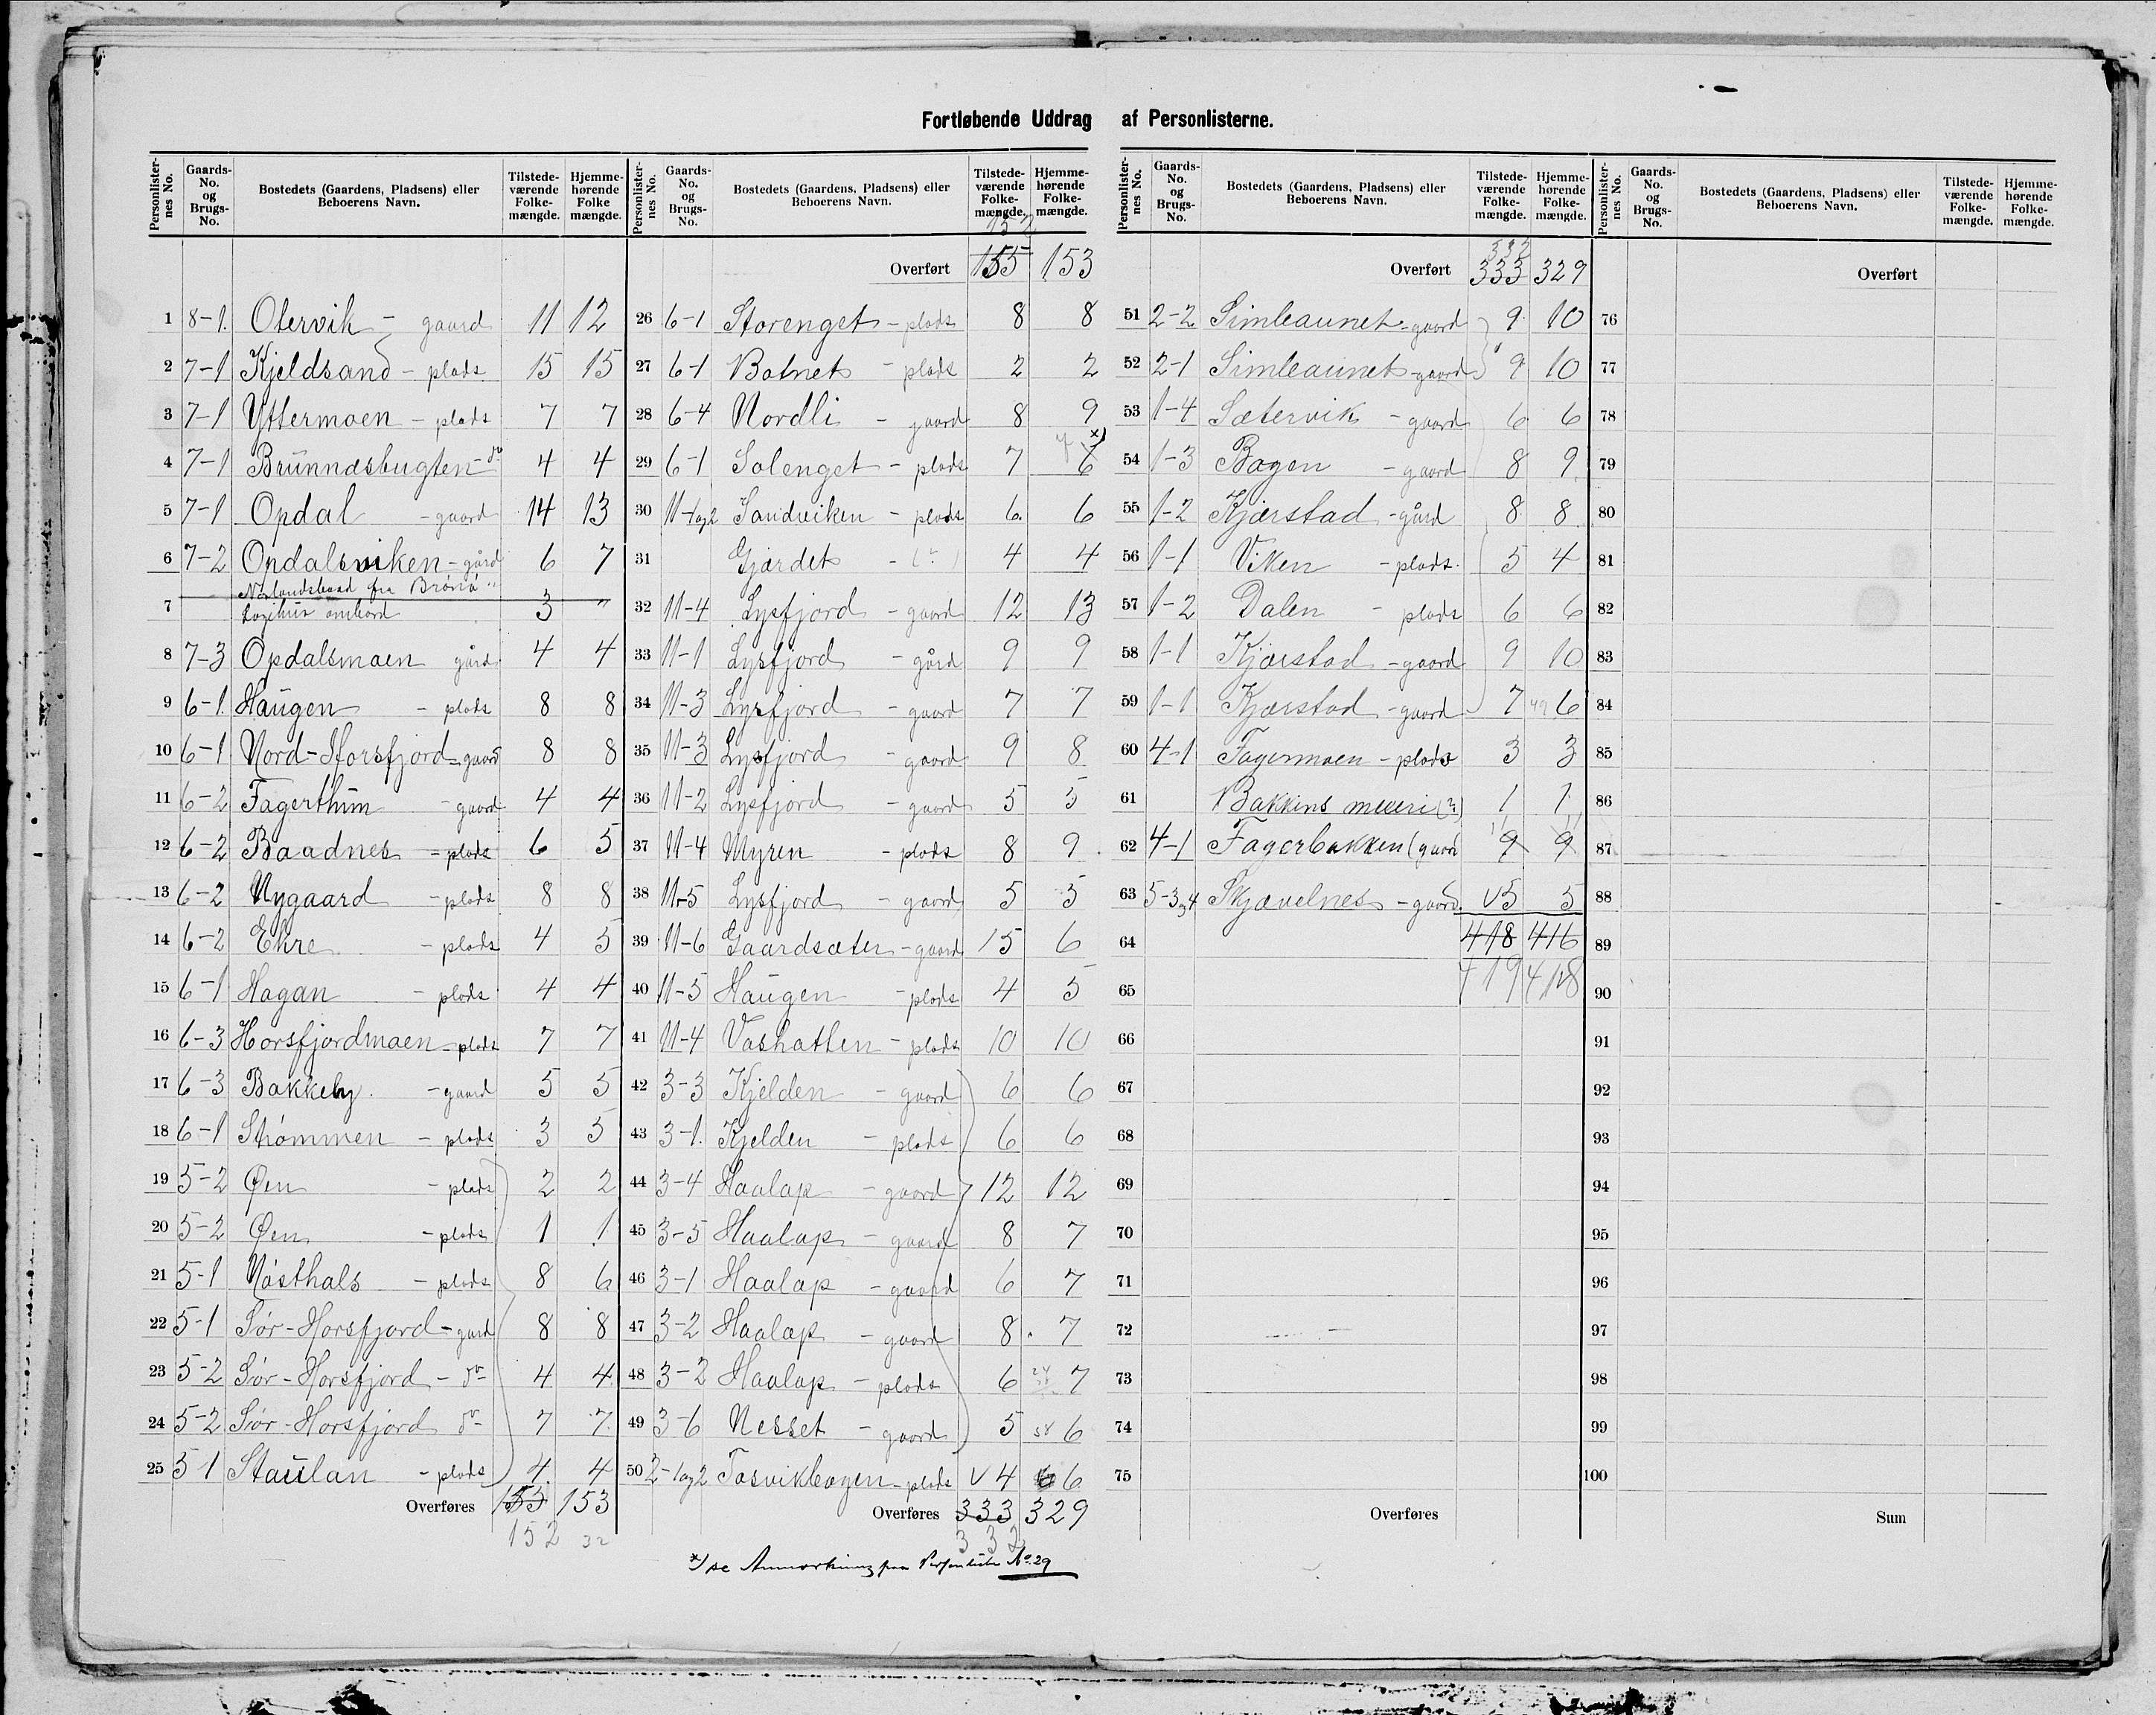 Fortløbende Uddrag af Personlisterne.
Personlisternes No. Gaards-No. og Brugs-No. Bostedets (Gaardens, Pladsens) eller Beboerens Navn. Tilstedeværende Folkemængde. Hjemmehørende Folkemængde.
1 8-1. Otervik - gaard 11 12
2 7-1 Kjeldsand - plads 15 15
3 7-1 Yttermoen - plads 7 7
4 7-1 Brünnæsbugten - do 4 4
5 7-1 Opdal - gaard 14 13
6 7-2 Opdalsviken - gård 6 7
7 Norlandsbaad fra Brønø
Logihus ombord 3 "
8 7-3 Opdalsmoen gård 4 4
9 6-1. Haugen - plads 8 8
10 6-1 Nord-Horsfjord - gaard 8 8
11 6-2 Fagerthun - gaard 4 4
12 6-2 Baadnes - plads 6 5
13 6-2 Nygaard - plads 8 8
14 6-2 Ekre - plads 4 5
15 6-1 Hagan - plads 4 4
16 6-3 Horsfjordmoen - plads 7 7
17 6-3 Bakkeby - gaard 5 5
18 6-1 Strømmen - plads 3 5
19 5-2 Øen - plads 2 2
20 5-2 Øen - plads 1 1
21 5-1 Nøsthals - plads 8 6
22 5-1 Sør-Horsfjord - gard 8 8
23 5-2 Sør-Horsfjord - do 4 4
24 5-2 Sør-Horsfjord do 7 7
25 5 1 Staulan - plads 4 4
Overføres 155 153
152 32
Personlisternes No. Gaards-No. og Brugs-No. Bostedets (Gaardens, Pladsens) eller Beboerens Navn. Tilstedeværende Folkemængde. Hjemmehørende Folkemængde.
152
Overført 155 153
26 6-1 Storenget - plads 8 8
27 6-1 Botnet - plads 2 2
28 6-4 Nordli - gaard 8 9
29 6-1 Solenget - plads 7 6 x)
30 11-1og2 Sandviken - plads 6 6
31 Gjærdet - 4 4
32 11-4 Lysfjord - gaard 12 13
33 11-1 Lysfjord - gård 9 9
34 11-3 Lysfjord - gaard 7 7
35 11-3 Lysfjord gaard 9 8
36 11-2 Lysfjord - gaard 5 5
37 11-4 Myren - plads 8 9
38 11-5 Lysfjord - gaard 5 5
39 11-6 Gaardsæter - gaard 15 6
40 11-5 Haugen - plads 4 5
41 11-4 Vashatten - plads 10 10
42 3-3 Kjelden - gaard 6 6
43 3-1. Kjelden - plads 6 6
44 3-4 Haalap - gaard 12 12
45 3-5 Haalap - gaard 8 7
46 3-1 Haalap - gaard 6 7
47 3-2 Haalap - gaard 8 7
48 3-2 Haalap - plads 6 7
49 3-6 Nesset - gaard 5 6
50 2-1og2 Tosvikbogen - plads 4 6
Overføres 333 329
332
x) se Anmerkning paa Personliste No. 29
Personlisternes No. Gaards-No. og Brugs-No. Bostedets (Gaardens, Pladsens) eller Beboerens Navn. Tilstedeværende Folkemængde. Hjemmehørende Folkemængde.
332
Overført 333 329
51 2-2 Simleaunet - gaard 9 10
52 2-1 Simleaunet - gaard 9 10
53 1-4 Sætervik - gaard 6 6
54 1-3 Bogen - gaard 8 9
55 1-2 Kjærstad - gård 8 8
56 1-1 Viken - plads 5 4
57 1-2 Dalen - plads 6 6
58 1-1 Kjærstad - gaard 9 10
59 1-1 Kjærstad - gaard 7 49 6
60 4-1 Fagermoen - plads 3 3
61 Bakkins meieri (?) 1 1
62 4-1 Fagerbakken (gaard 9 9
63 5-3og4 Skjævelnes - gaard 5 5
64 418 416
65 419 418
66
67
68
69
70
71
72
73
74
75
Overføres
Personlisternes No. Gaards-No. og Brugs-No. Bostedets (Gaardens, Pladsens) eller Beboerens Navn. Tilstedeværende Folkemængde. Hjemmehørende Folkemængde.
Overført
76
77
78
79
80
81
82
83
84
85
86
87
88
89
90
91
92
93
94
95
96
97
98
99
100
Sum